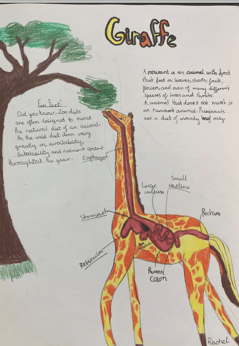 Giraffe
A ruminant is an animal with
that feed on leaves, shoots, fruits,
flowers and even of many different
species of trees and shrubs.
A animal that does not eat meat is
an animal.
eat a diet of mainly only
Fun Fact:
Did you know: Zoo diets
are often designed to mimic
the natural diet of an animal.
In the wild diet item vary
greatly in availability,
Palatability and nutrient content
throughout the year.
Esophagus
Small
intestine
Large
intestine
Stomach
Rectum
Rumen
Colon
Rachel